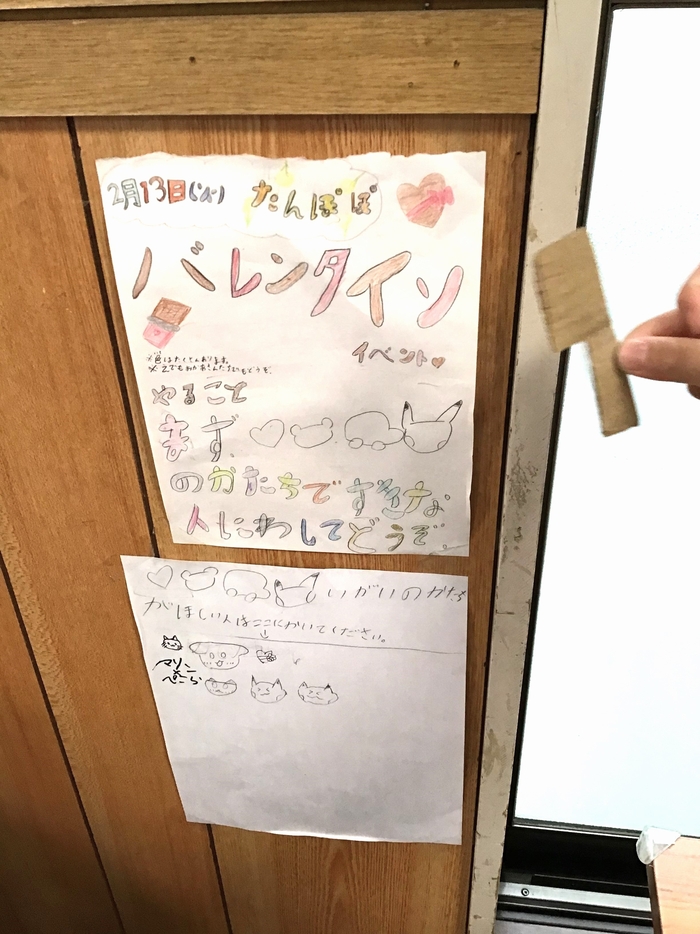 2月13日(火) たんぽぽ
バレンタイン
イベント
※色はたくさんあります。
やること
まず、
のかたちですきな
人にわたしてどうぞ。
いがいのかたち
がほしい人はここにかいてください。
マリン
ぺこら